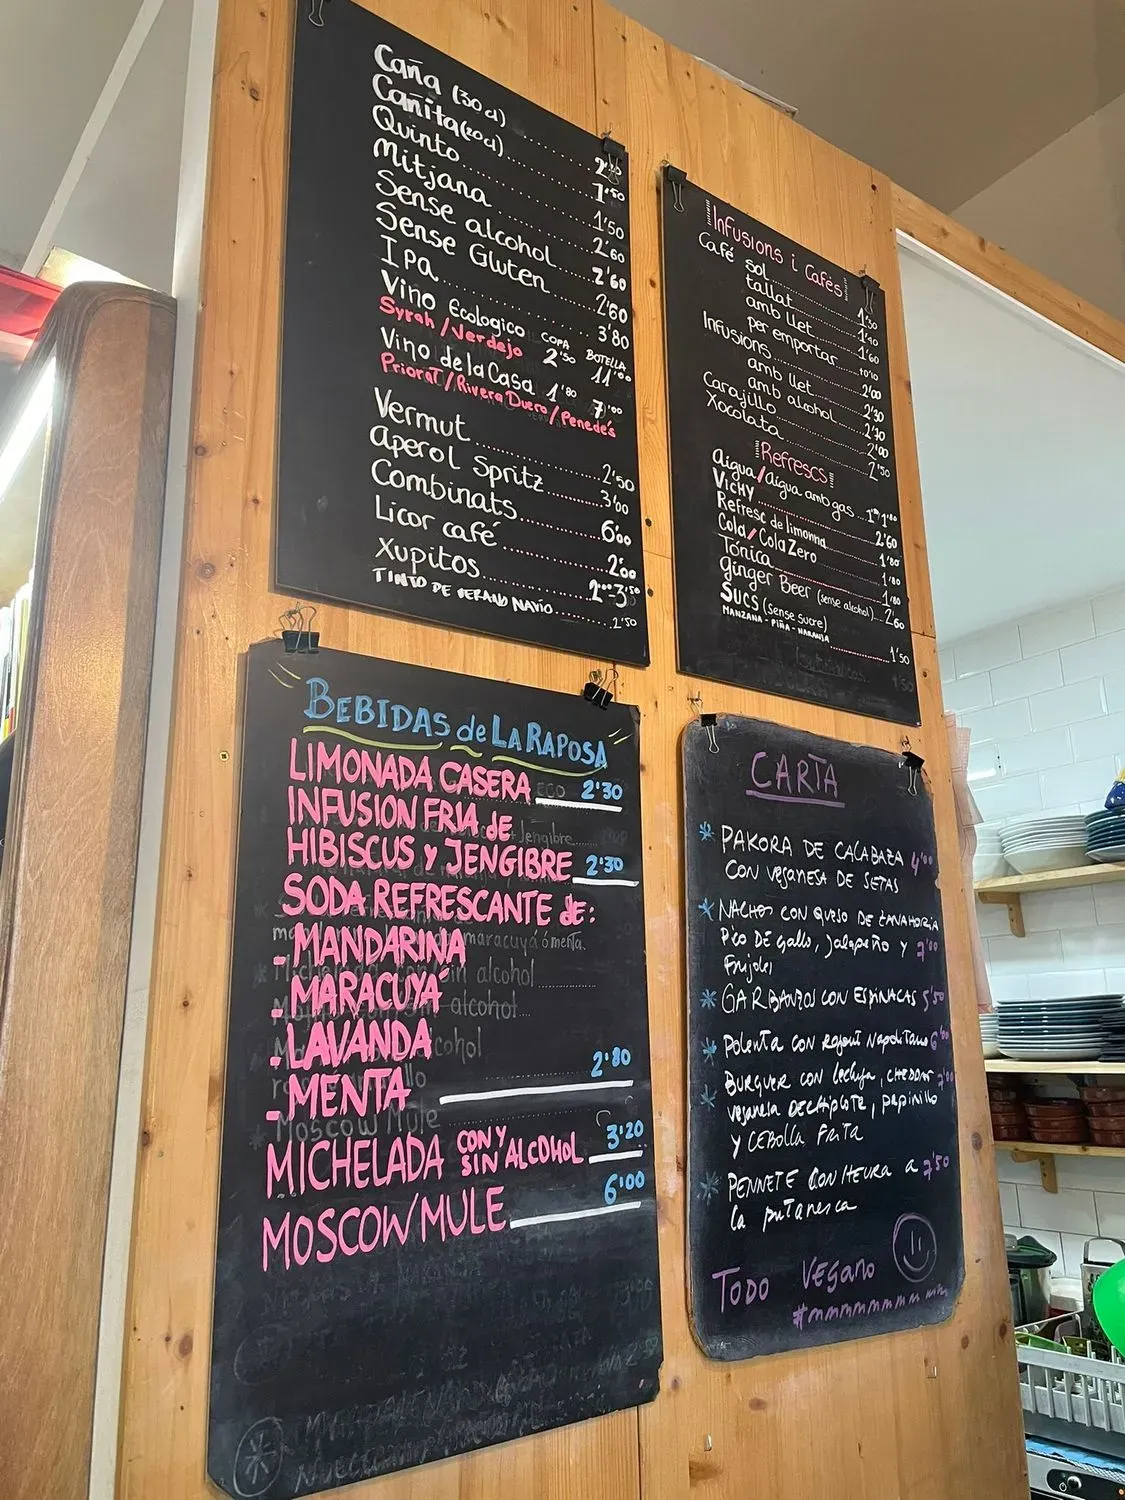 Caña (30 cl)
Cañita (20 cl) ..... 2'20
Quinto ..... 1'50
Mitjana ..... 1'50
Sense alcohol ..... 2'60
Sense Gluten ..... 2'60
Ipa ..... 2'60
Vino Ecologico ..... 3'80
Syrah / Verdejo COPA 2'50 BOTELLA 11'00
Vino de la Casa 1'80 7'00
Priorat / Rivera Duero / Penedes
Vermut ..... 2'50
Aperol Spritz ..... 3'00
Combinats ..... 6'00
Licor café ..... 2'00
Xupitos ..... 2'00-3'50
TINTO DE VERANO NAVIO ..... 2'50
Infusions i Cafès
Café sol
tallat ..... 1'30
amb llet ..... 1'40
per emportar ..... 1'60
Infusions ..... +0'10
amb llet ..... 2'00
amb alcohol ..... 2'30
Carajillo ..... 2'70
Xocolata ..... 2'00
2'50
Refrescs
Aigua / Aigua amb gas ... 1'80
VICHY ..... 2'60
Refresc de limonna ..... 1'80
Cola / Cola Zero ..... 1'80
Tónica ..... 1'80
Ginger Beer (sense alcohol) ... 2'60
SUCS (sense sucre)
MANZANA - PIÑA - NARANJA ..... 1'50
BEBIDAS de LA RAPOSA
LIMONADA CASERA 2'30
INFUSION FRIA de
HIBISCUS y JENGIBRE 2'30
SODA REFRESCANTE de:
- MANDARINA
- MARACUYÁ
- LAVANDA
- MENTA 2'80
MICHELADA CON Y SIN ALCOHOL 3'20
MOSCOW MULE 6'00
CARTA
* PAKORA DE CALABAZA 4'00
CON VEGANESA DE SETAS
* NACHOS CON QUESO DE ZANAHORIA
PICO DE gallo, Jalapeño y 7'00
Frijoles
* GARBANZOS CON ESPINACAS 5'50
* Polenta con ragout Napolitano 6'00
* BURGUER CON lechuga, CHEDDAR 7'00
veganesa DE CHIPOTLE, pepinillo
y CEBOLLA FRITA
* PENNETE CON HEURA a 7'50
la putanesca
TODO VEGANO
#mmmmmmmmm